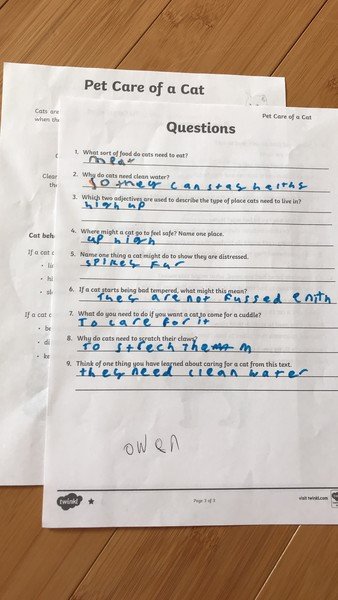 Pet Care of a Cat
Cats are
when the
Clean
the
Cat beh
If a cat
If a cat
Pet Care of a Cat
Questions
1. What sort of food do cats need to eat?
meat
2. Why do cats need clean water?
so they can stay helths
3. Which two adjectives are used to describe the type of place cats need to live in?
high up
4. Where might a cat go to feel safe? Name one place.
up high
5. Name one thing a cat might do to show they are distressed.
spikey fur
6. If a cat starts being bad tempered, what might this mean?
they are not fussed enith
7. What do you need to do if you want a cat to come for a cuddle?
to care for it
8. Why do cats need to scratch their claws?
to strech them
9. Think of one thing you have learned about caring for a cat from this text.
they need clean water
owen
twinkl
Page 3 of 3
visit twinkl.com